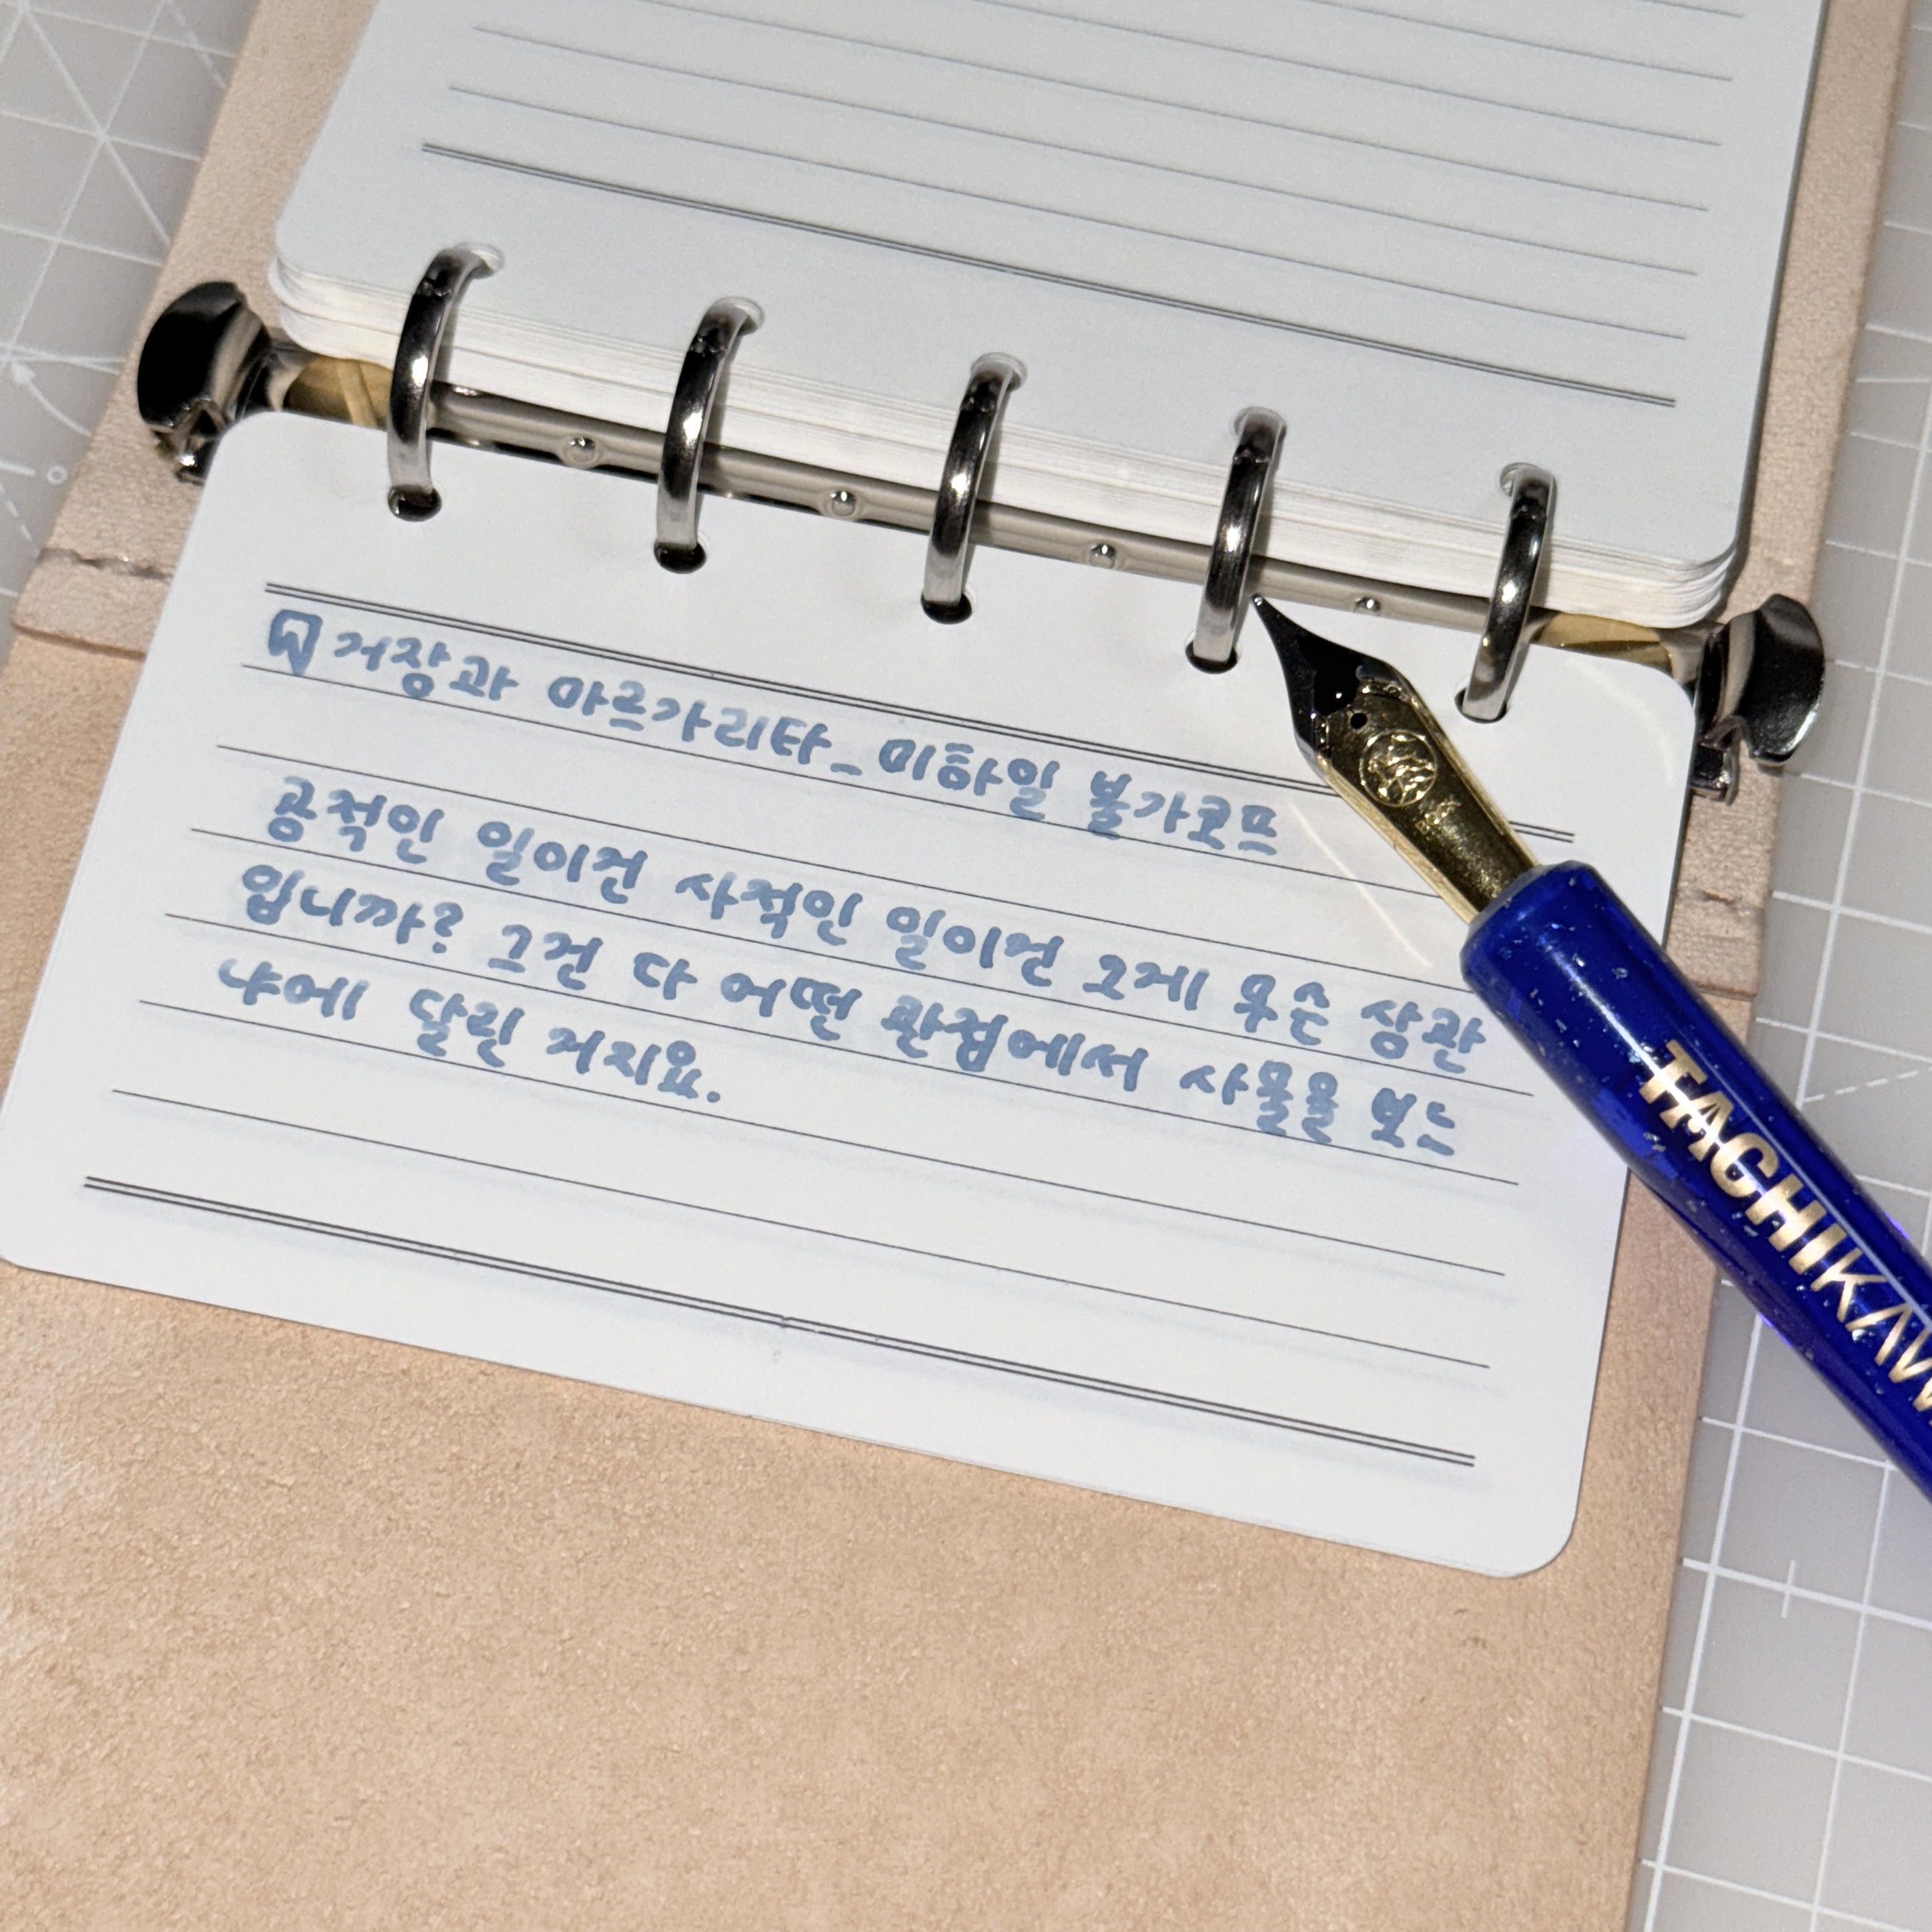 거장과 마르가리타_미하일 불가코프
공적인 일이건 사적인 일이건 그게 무슨 상관
입니까? 그건 다 어떤 관점에서 사물을 보느
냐에 달린 거지요.
TACHIKAW